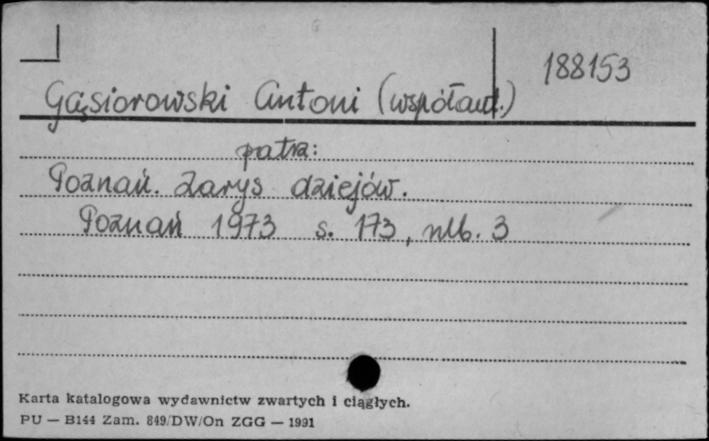 188153
Gąsiorowski Antoni (współaut.)
patrz:
Poznań. Zarys dziejów.
Poznań 1973 s. 173, nlb. 3
Karta katalogowa wydawnictw zwartych i ciągłych.
PU — B144 Zam. 849/DW/On ZGG — 1991